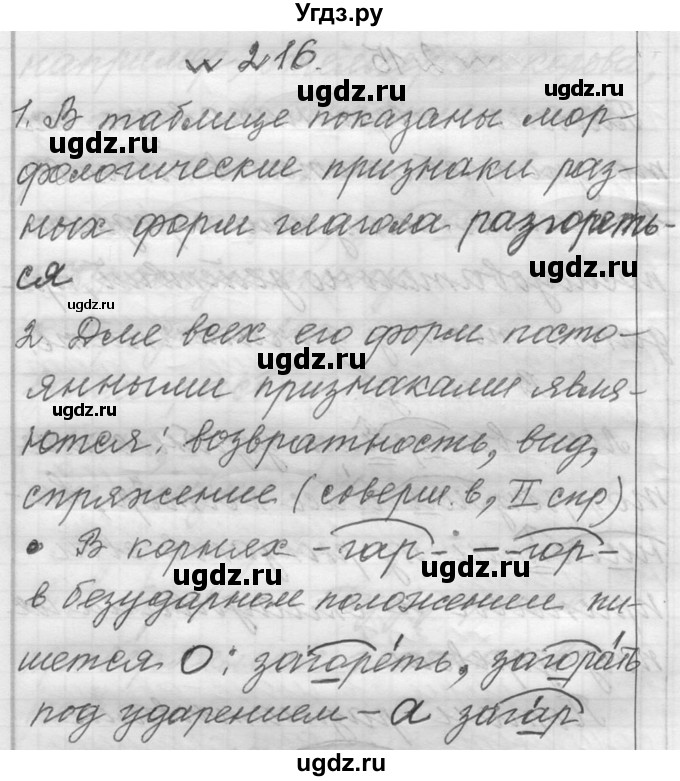 Угдз.ру
№ 216.
ugdz.ru
1. В таблице показаны мор-
ugdz.ru
фологические признаки раз-
ных форм глагола разгореть-
ся
ugdz.ru
ugdz.ru
2. Для всех его форм посто-
ugdz.ru
янными признаками явля-
ugdz.ru
ются: возвратность, вид,
спряжение (соверш. в, II спр)
• В корнях -гар- - -гор-
ugdz.ru
ugdz.ru
в безударном положении пи-
шется О: загоре́ть, загора́ть
под ударением - а зага́р
ugdz.ru